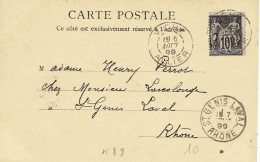 CARTE POSTALE
Ce côté est exclusivement réservé à l'adresse.
6
AOUT
99
ALLIER
10
Madame Henry Perrot
chez Monsieur Lucolonge
à St Genis Laval
Rhône
ST GENIS LAVAL
7
99
RHONE